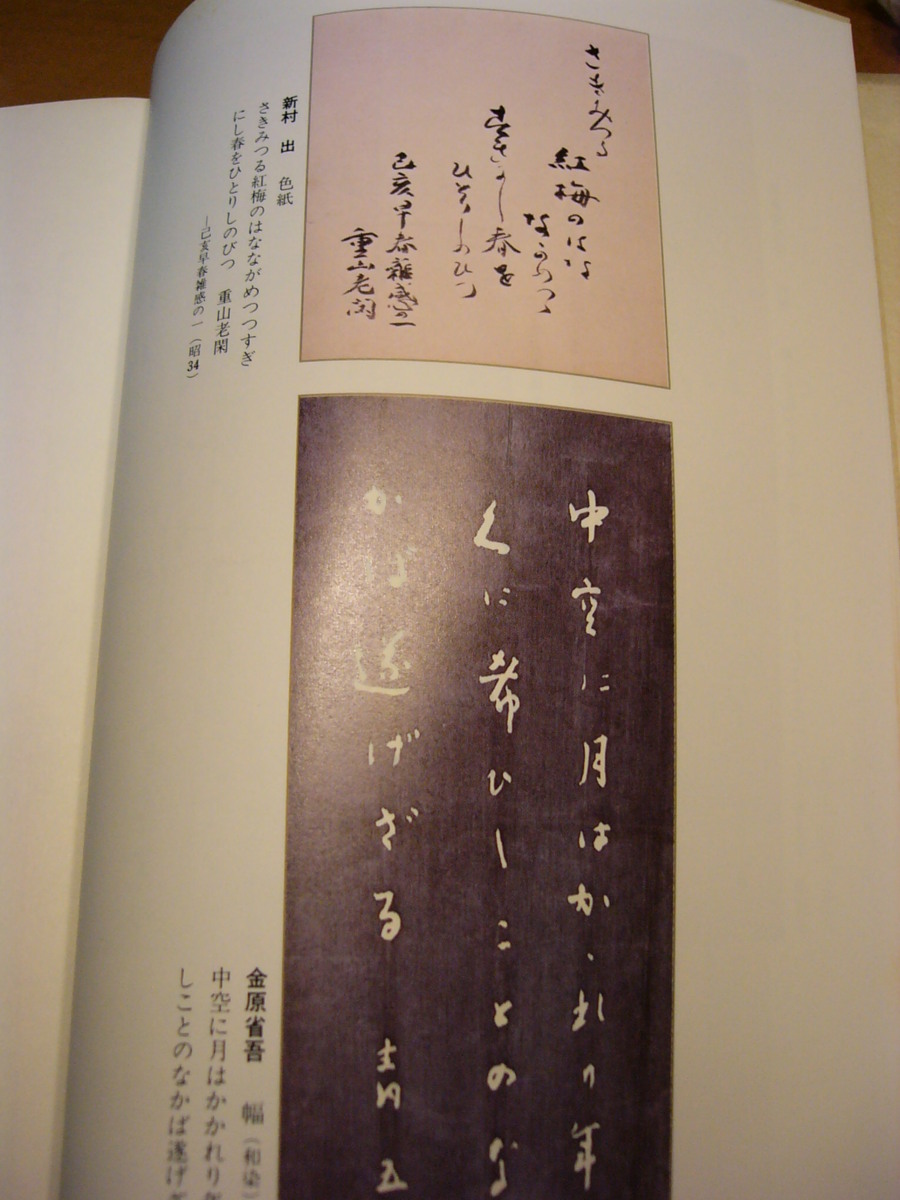 さきみつる
紅梅のはな
ながめつつ
すぎにし春を
ひとりしのびつ
己亥早春雑感の一
重山老閑
新村 出 色紙
さきみつる紅梅のはなながめつつすぎ
にし春をひとりしのびつ 重山老閑
―己亥早春雑感の一(昭34)
中空に月はかゝれり年
久に希ひしことのな
かば遂げざる 青五
金原省吾 幅(和染)
中空に月はかかれり年
しことのなかば遂げざ